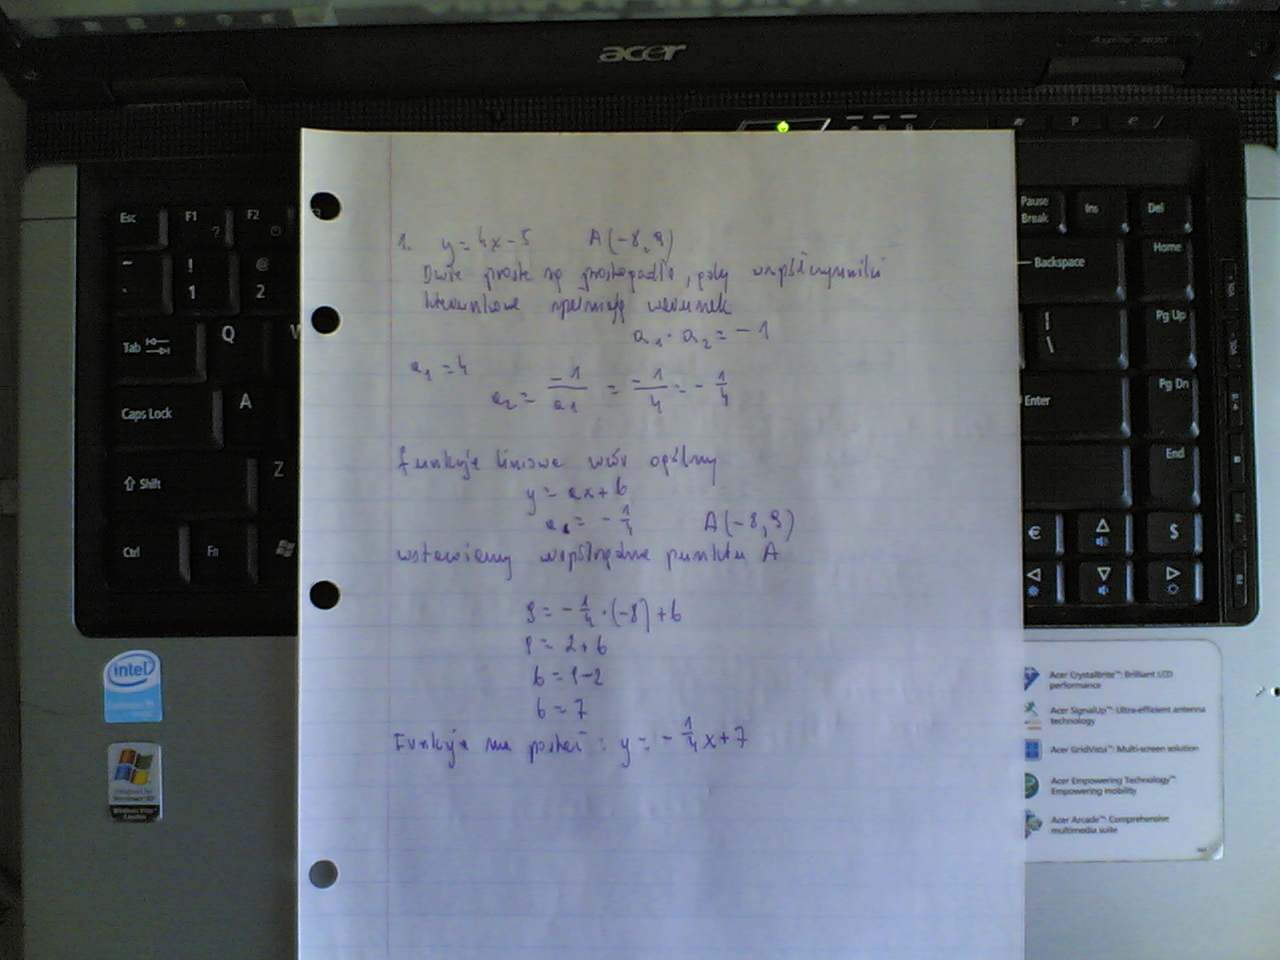 acer
Esc
F1
?
F2
~
!
1
@
2
Tab
Q
W
Caps Lock
A
Shift
Z
Ctrl
Fn
P
e
Pause
Break
Ins
Del
Backspace
Home
|
\
Pg Up
Enter
Pg Dn
End
€
$
1. y = 4x - 5 A(-8, 9)
Dwie proste są prostopadłe, gdy współczynniki
kierunkowe spełniają warunek
a₁ · a₂ = -1
a₁ = 4
a₂ = -1/a₁ = -1/4 = - 1/4
funkcja liniowa wzór ogólny
y = ax + b
- 1/4 A(-8, 9)
wstawiamy współrzędne punktu A
9 = - 1/4 · (-8) + b
9 = 2 + b
b = 9 - 2
b = 7
Funkcja ma postać: y = - 1/4 x + 7
intel
Centrino
Designed for
Windows XP
Windows Vista
Capable
Acer CrystalBrite™: Brilliant LCD
performance
Acer SignalUp™: Ultra-efficient antenna
technology
Acer GridVista™: Multi-screen solution
Acer Empowering Technology™
Empowering mobility
Acer Arcade™: Comprehensive
multimedia suite